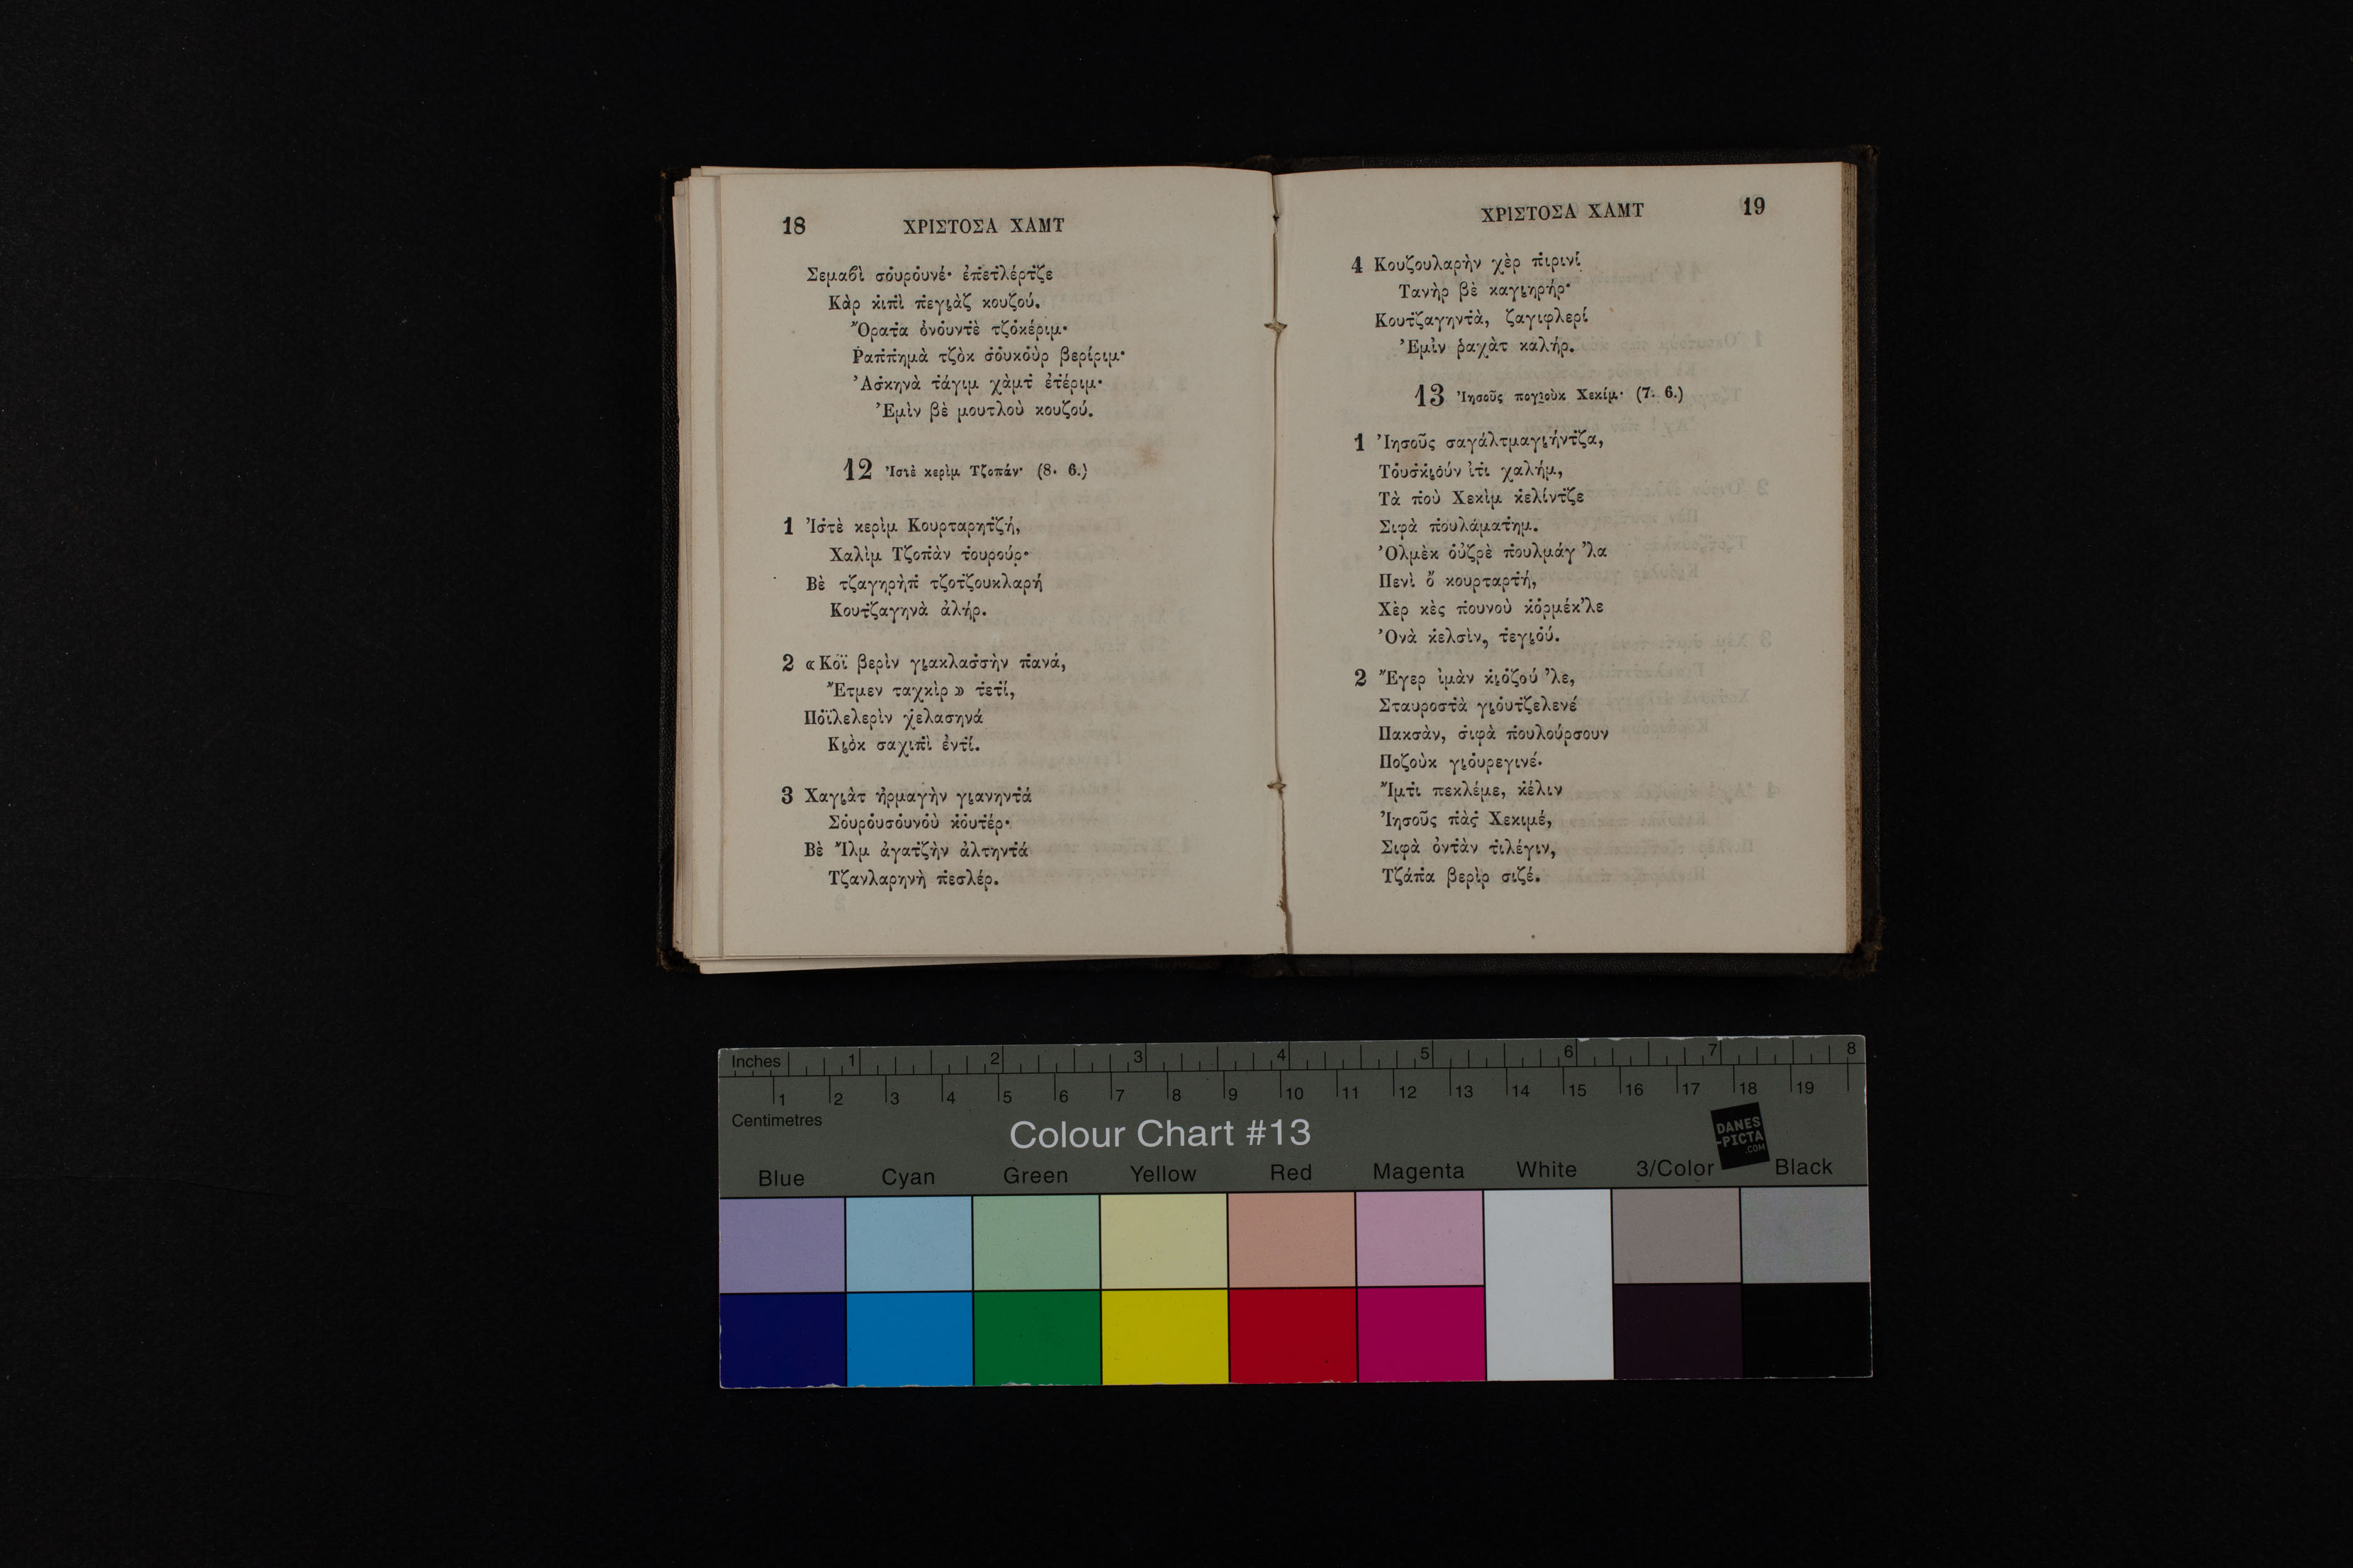 18 ΧΡΙΣΤΟΣΑ ΧΑΜΤ
Σεμαβὶ σουρουνέ· ἐπετλέρτζε
Κὰρ κιπὶ πεγιὰζ κουζού.
Ὄρατα ὀνουντὲ τζοκέριμ·
Ῥαππημὰ τζὸκ σουκοὺρ βερίριμ·
Ἀσκηνὰ τάγιμ χὰμτ ἐτέριμ·
Ἐμὶν βὲ μουτλοὺ κουζού.
12 Ἰστὲ κερὶμ Τζοπάν· (8. 6.)
1 Ἰστὲ κερὶμ Κουρταρητζή,
Χαλὶμ Τζοπὰν τουρούρ·
Βὲ τζαγηρὴπ τζοτζουκλαρή
Κουτζαγηνὰ ἀλήρ.
2 «Κοΐ βερὶν γιακλασσὴν πανά,
Ἔτμεν ταχκὶρ» τετί,
Ποϊλελερὶν χελασηνά
Κιὸκ σαχιπὶ ἐντί.
3 Χαγιὰτ ἠρμαγὴν γιανηντά
Σουρουσουνοὺ κουτέρ·
Βὲ Ἴλμ ἀγατζὴν ἀλτηντά
Τζανλαρηνὴ πεσλέρ.
ΧΡΙΣΤΟΣΑ ΧΑΜΤ 19
4 Κουζουλαρὴν χὲρ πιρινί
Τανὴρ βὲ καγιηρήρ·
Κουτζαγηντὰ, ζαγιφλερί
Ἐμὶν ῥαχὰτ καλήρ.
13 Ἰησοῦς πογιοὺκ Χεκίμ· (7. 6.)
1 Ἰησοῦς σαγάλτμαγιήντζα,
Τουσκιούν ἰτι χαλήμ,
Τὰ ποὺ Χεκὶμ κελίντζε
Σιφὰ πουλάματημ.
Ὀλμὲκ οὐζρὲ πουλμάγ ’λα
Πενὶ ὄ κουρταρτή,
Χὲρ κὲς πουνοὺ κορμέκ’λε
Ὀνὰ κελσὶν, τεγιού.
2 Ἔγερ ἰμὰν κιοζού ’λε,
Σταυροστὰ γιουτζελενέ
Πακσὰν, σιφὰ πουλούρσουν
Ποζοὺκ γιουρεγινέ.
Ἴμτι πεκλέμε, κέλιν
Ἰησοῦς πὰς Χεκιμέ,
Σιφὰ ὀντὰν τιλέγιν,
Τζάπα βερὶρ σιζέ.
Inches 1 2 3 4 5 6 7 8
1 2 3 4 5 6 7 8 9 10 11 12 13 14 15 16 17 18 19
Centimetres
Colour Chart #13
DANES
-PICTA
.COM
Blue Cyan Green Yellow Red Magenta White 3/Color Black